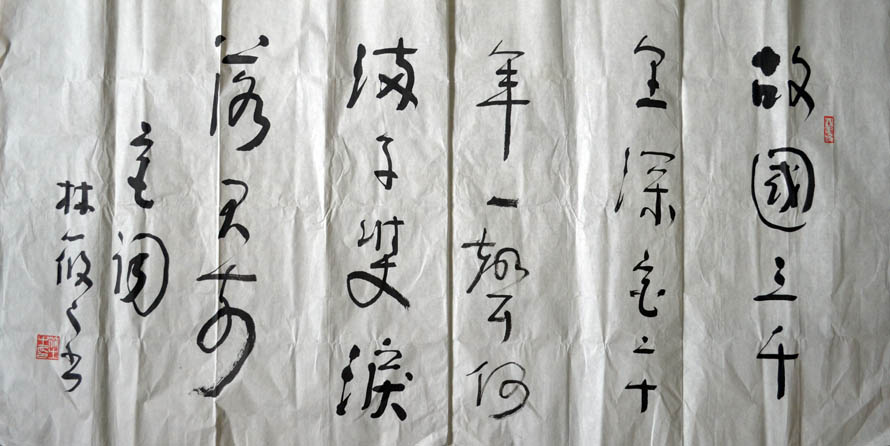 故國三千
里深宮二十
年一聲何
滿子雙淚
落君前
宮詞
林筱之書